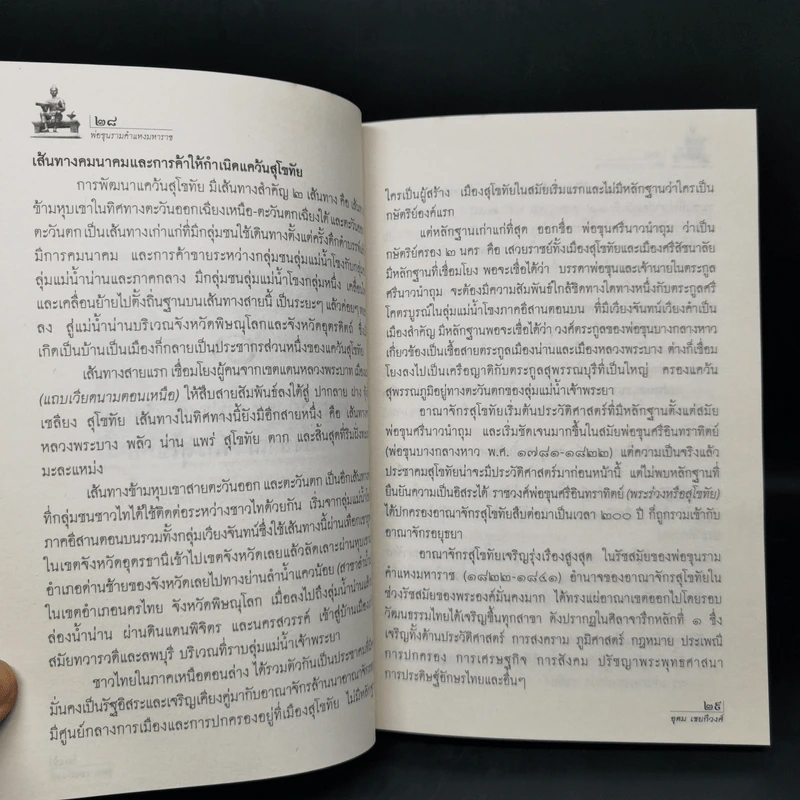 ๒๘
พ่อขุนรามคำแหงมหาราช
เส้นทางคมนาคมและการค้าให้กำเนิดแคว้นสุโขทัย
การพัฒนาแคว้นสุโขทัย มีเส้นทางสำคัญ ๒ เส้นทาง คือ เส้นทาง
ข้ามหุบเขาในทิศทางตะวันออกเฉียงเหนือ-ตะวันตกเฉียงใต้ และตะวันออก
ตะวันตก เป็นเส้นทางเก่าแก่ที่มีกลุ่มชนใช้เดินทางตั้งแต่ครั้งดึกดำบรรพ์
มีการคมนาคม และการค้าขายระหว่างกลุ่มชนลุ่มแม่น้ำโขงกับกลุ่ม
ลุ่มแม่น้ำน่านและภาคกลาง มีกลุ่มชนลุ่มแม่น้ำโขงกลุ่มหนึ่ง
และเคลื่อนย้ายไปตั้งถิ่นฐานบนเส้นทางสายนี้ เป็นระยะๆ แล้วค่อยๆ
ลง สู่แม่น้ำน่านบริเวณจังหวัดพิษณุโลกและจังหวัดอุตรดิตถ์
เกิดเป็นบ้านเป็นเมืองก็กลายเป็นประชากรส่วนหนึ่งของแคว้นสุโขทัย
เส้นทางสายแรก เชื่อมโยงผู้คนจากเขตแดนหลวงพระบาง
(แถบเวียดนามตอนเหนือ) ให้สืบสายสัมพันธ์ลงใต้สู่ ปากลาย ฝาง
เชลียง สุโขทัย เส้นทางในทิศทางนี้ยังมีอีกสายหนึ่ง คือ เส้นทาง
หลวงพระบาง พลัว น่าน แพร่ สุโขทัย ตาก และสิ้นสุดที่ริมฝั่ง
มะละแหม่ง
เส้นทางข้ามหุบเขาสายตะวันออก และตะวันตก เป็นอีกเส้นทาง
ที่กลุ่มชนชาวไทได้ใช้ติดต่อระหว่างชาวไทด้วยกัน เริ่มจากลุ่มแม่น้ำ
ภาคอีสานตอนบนรวมทั้งกลุ่มเวียงจันทน์ซึ่งใช้เส้นทางนี้ผ่าน
ในเขตจังหวัดอุดรธานีเข้าไปเขตจังหวัดเลยแล้วลัดเลาะผ่านหุบเขา
อำเภอด่านซ้ายของจังหวัดเลยไปทางย่านลำน้ำแควน้อย
ในเขตอำเภอนครไทย จังหวัดพิษณุโลก เมื่อลงไปถึงลุ่มแม่น้ำน่านแล้ว
ล่องน้ำน่าน ผ่านดินแดนพิจิตร และนครสวรรค์ เข้าสู่บ้านเมือง
สมัยทวารวดีและลพบุรี บริเวณที่ราบลุ่มแม่น้ำเจ้าพระยา
ชาวไทยในภาคเหนือตอนล่าง ได้รวมตัวกันเป็นประชาคม
มั่นคงเป็นรัฐอิสระและเจริญเคียงคู่มากับอาณาจักรล้านนา
มีศูนย์กลางการเมืองและการปกครองอยู่ที่เมืองสุโขทัย ไม่มีหลักฐาน
ใครเป็นผู้สร้าง เมืองสุโขทัยในสมัยเริ่มแรกและไม่มีหลักฐานว่าใครเป็น
กษัตริย์องค์แรก
แต่หลักฐานเก่าแก่ที่สุด ออกชื่อ พ่อขุนศรีนาวนำถุม ว่าเป็น
กษัตริย์ครอง ๒ นคร คือ เสวยราชย์ทั้งเมืองสุโขทัยและเมืองศรีสัชนาลัย
มีหลักฐานที่เชื่อมโยง พอจะเชื่อได้ว่า บรรดาพ่อขุนและเจ้านายในตระกูล
ศรีนาวนำถุม จะต้องมีความสัมพันธ์ใกล้ชิดทางใดทางหนึ่งกับตระกูลศรี
โคตรบูรณ์ในลุ่มแม่น้ำโขงภาคอีสานตอนบน ที่มีเวียงจันทน์เวียงคำเป็น
เมืองสำคัญ มีหลักฐานพอจะเชื่อได้ว่า วงศ์ตระกูลของพ่อขุนบางกลางหาว
เกี่ยวข้องเป็นเชื้อสายตระกูลเมืองน่านและเมืองหลวงพระบาง ต่างก็เชื่อม
โยงลงไปเป็นเครือญาติกับตระกูลสุพรรณบุรีที่เป็นใหญ่ ครองแคว้น
สุพรรณภูมิอยู่ทางตะวันตกของลุ่มแม่น้ำเจ้าพระยา
อาณาจักรสุโขทัยเริ่มต้นประวัติศาสตร์ที่มีหลักฐานตั้งแต่สมัย
พ่อขุนศรีนาวนำถุม และเริ่มชัดเจนมากขึ้นในสมัยพ่อขุนศรีอินทราทิตย์
(พ่อขุนบางกลางหาว พ.ศ. ๑๗๘๑-๑๘๒๒) แต่ความเป็นจริงแล้ว
ประชาคมสุโขทัยน่าจะมีประวัติศาสตร์มาก่อนหน้านี้ แต่ไม่พบหลักฐานที่
ยืนยันความเป็นอิสระได้ ราชวงศ์พ่อขุนศรีอินทราทิตย์ (พระร่วงหรือสุโขทัย)
ได้ปกครองอาณาจักรสุโขทัยสืบต่อมาเป็นเวลา ๒๐๐ ปี ก็ถูกรวมเข้ากับ
อาณาจักรอยุธยา
อาณาจักรสุโขทัยเจริญรุ่งเรืองสูงสุด ในรัชสมัยของพ่อขุนราม
คำแหงมหาราช (๑๘๒๒-๑๘๔๑) อำนาจของอาณาจักรสุโขทัยใน
ช่วงรัชสมัยของพระองค์มั่นคงมาก ได้ทรงแผ่อาณาเขตออกไปโดยรอบ
วัฒนธรรมไทยได้เจริญขึ้นทุกสาขา ดังปรากฏในศิลาจารึกหลักที่ ๑ ซึ่ง
เจริญทั้งด้านประวัติศาสตร์ การสงคราม ภูมิศาสตร์ กฎหมาย ประเพณี
การปกครอง การเศรษฐกิจ การสังคม ปรัชญาพระพุทธศาสนา
การประดิษฐ์อักษรไทยและอื่นๆ
๒๙
อุดม เชยกีวงศ์